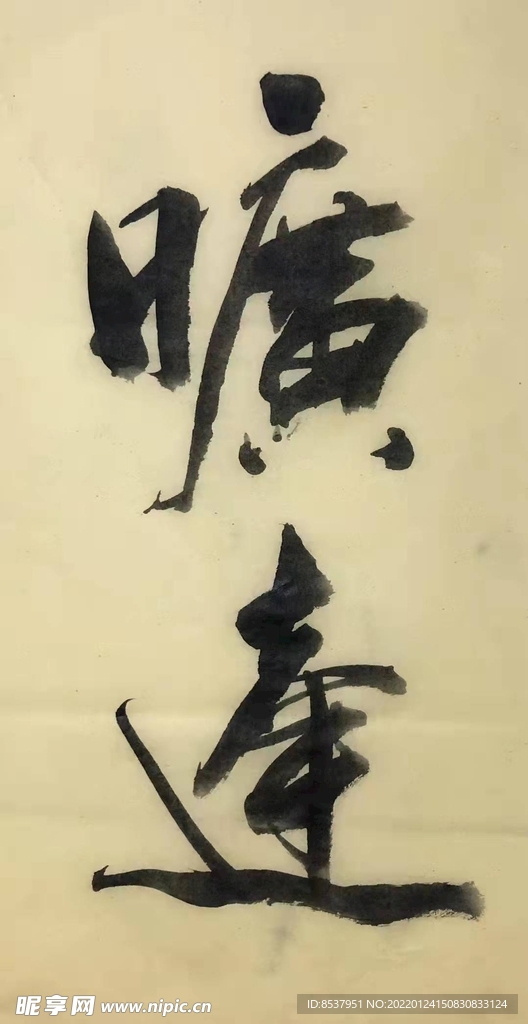 曠達
昵享网 www.nipic.cn
ID:8537951 NO:20220124150830833124